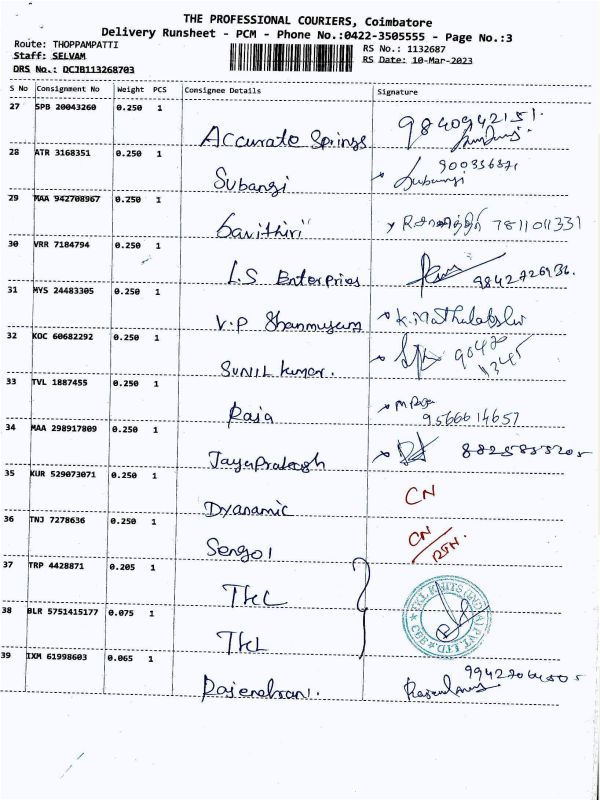 THE PROFESSIONAL COURIERS, Coimbatore
Delivery Runsheet - PCM - Phone No.:0422-3505555 - Page No.:3
Route: THOPPAMPATTI
RS No.: 1132687
Staff: SELVAM
RS Date: 10-Mar-2023
DRS No.: DCJB113268703
S No Consignment No Weight PCS Consignee Details Signature
27 SPB 20043260 0.250 1 Accurate Springs 9840942151.
28 ATR 3168351 0.250 1 Subangi Subangi
29 MAA 942708967 0.250 1 Gavithiri 7811011331
30 VRR 7184794 0.250 1 L.S Enterpries
31 MYS 24483305 0.250 1 V.P Shanmugam
32 KOC 60682292 0.250 1 SUNIL kumar.
33 TVL 1887455 0.250 1 Raja 9566614657
34 MAA 298917809 0.250 1 JayaPrakash
35 KUR 529073071 0.250 1 Dyanamic CN
36 TNJ 7278636 0.250 1 Sengol CN/RTN.
37 TRP 4428871 0.205 1
38 BLR 5751415177 0.075 1 TKL
39 IXM 61998603 0.065 1 Rajendran.